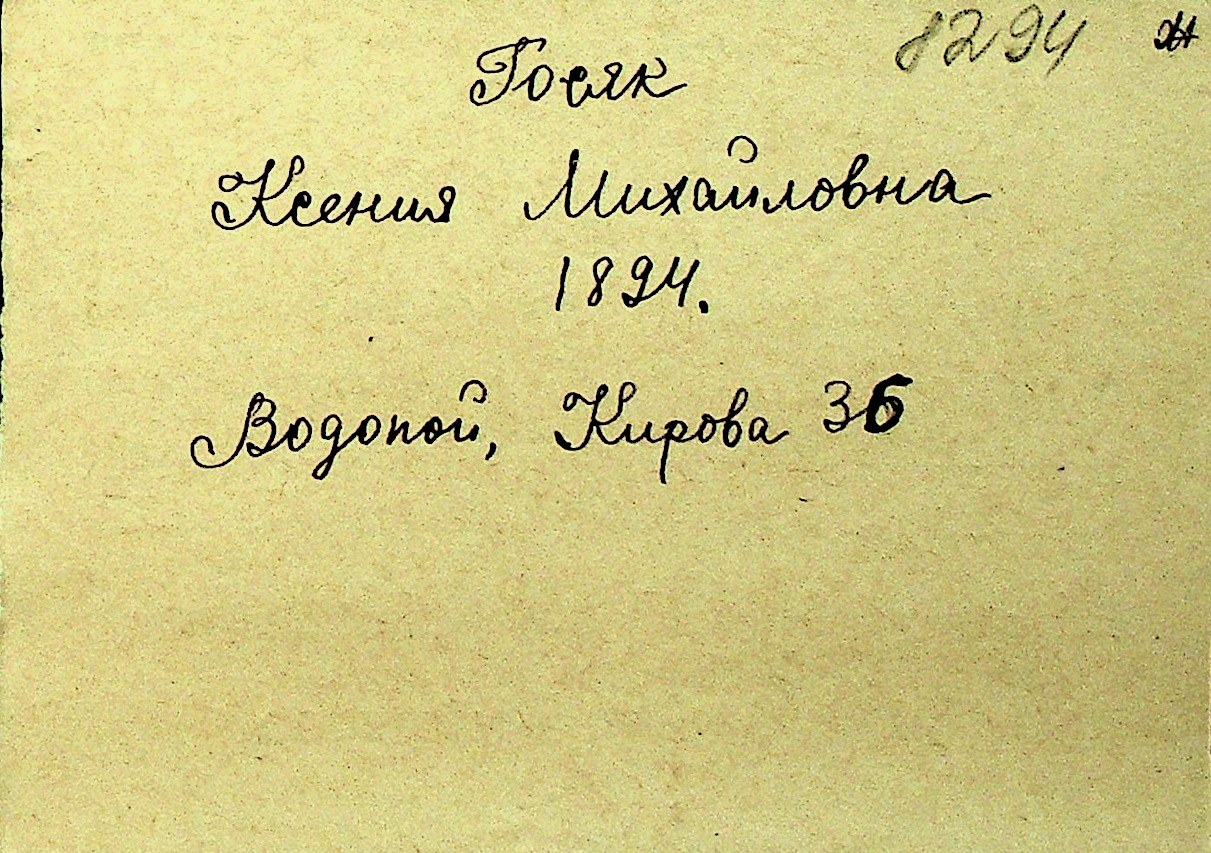 8294
Госяк
Ксения Михайловна
1894.
Водопой, Кирова 36